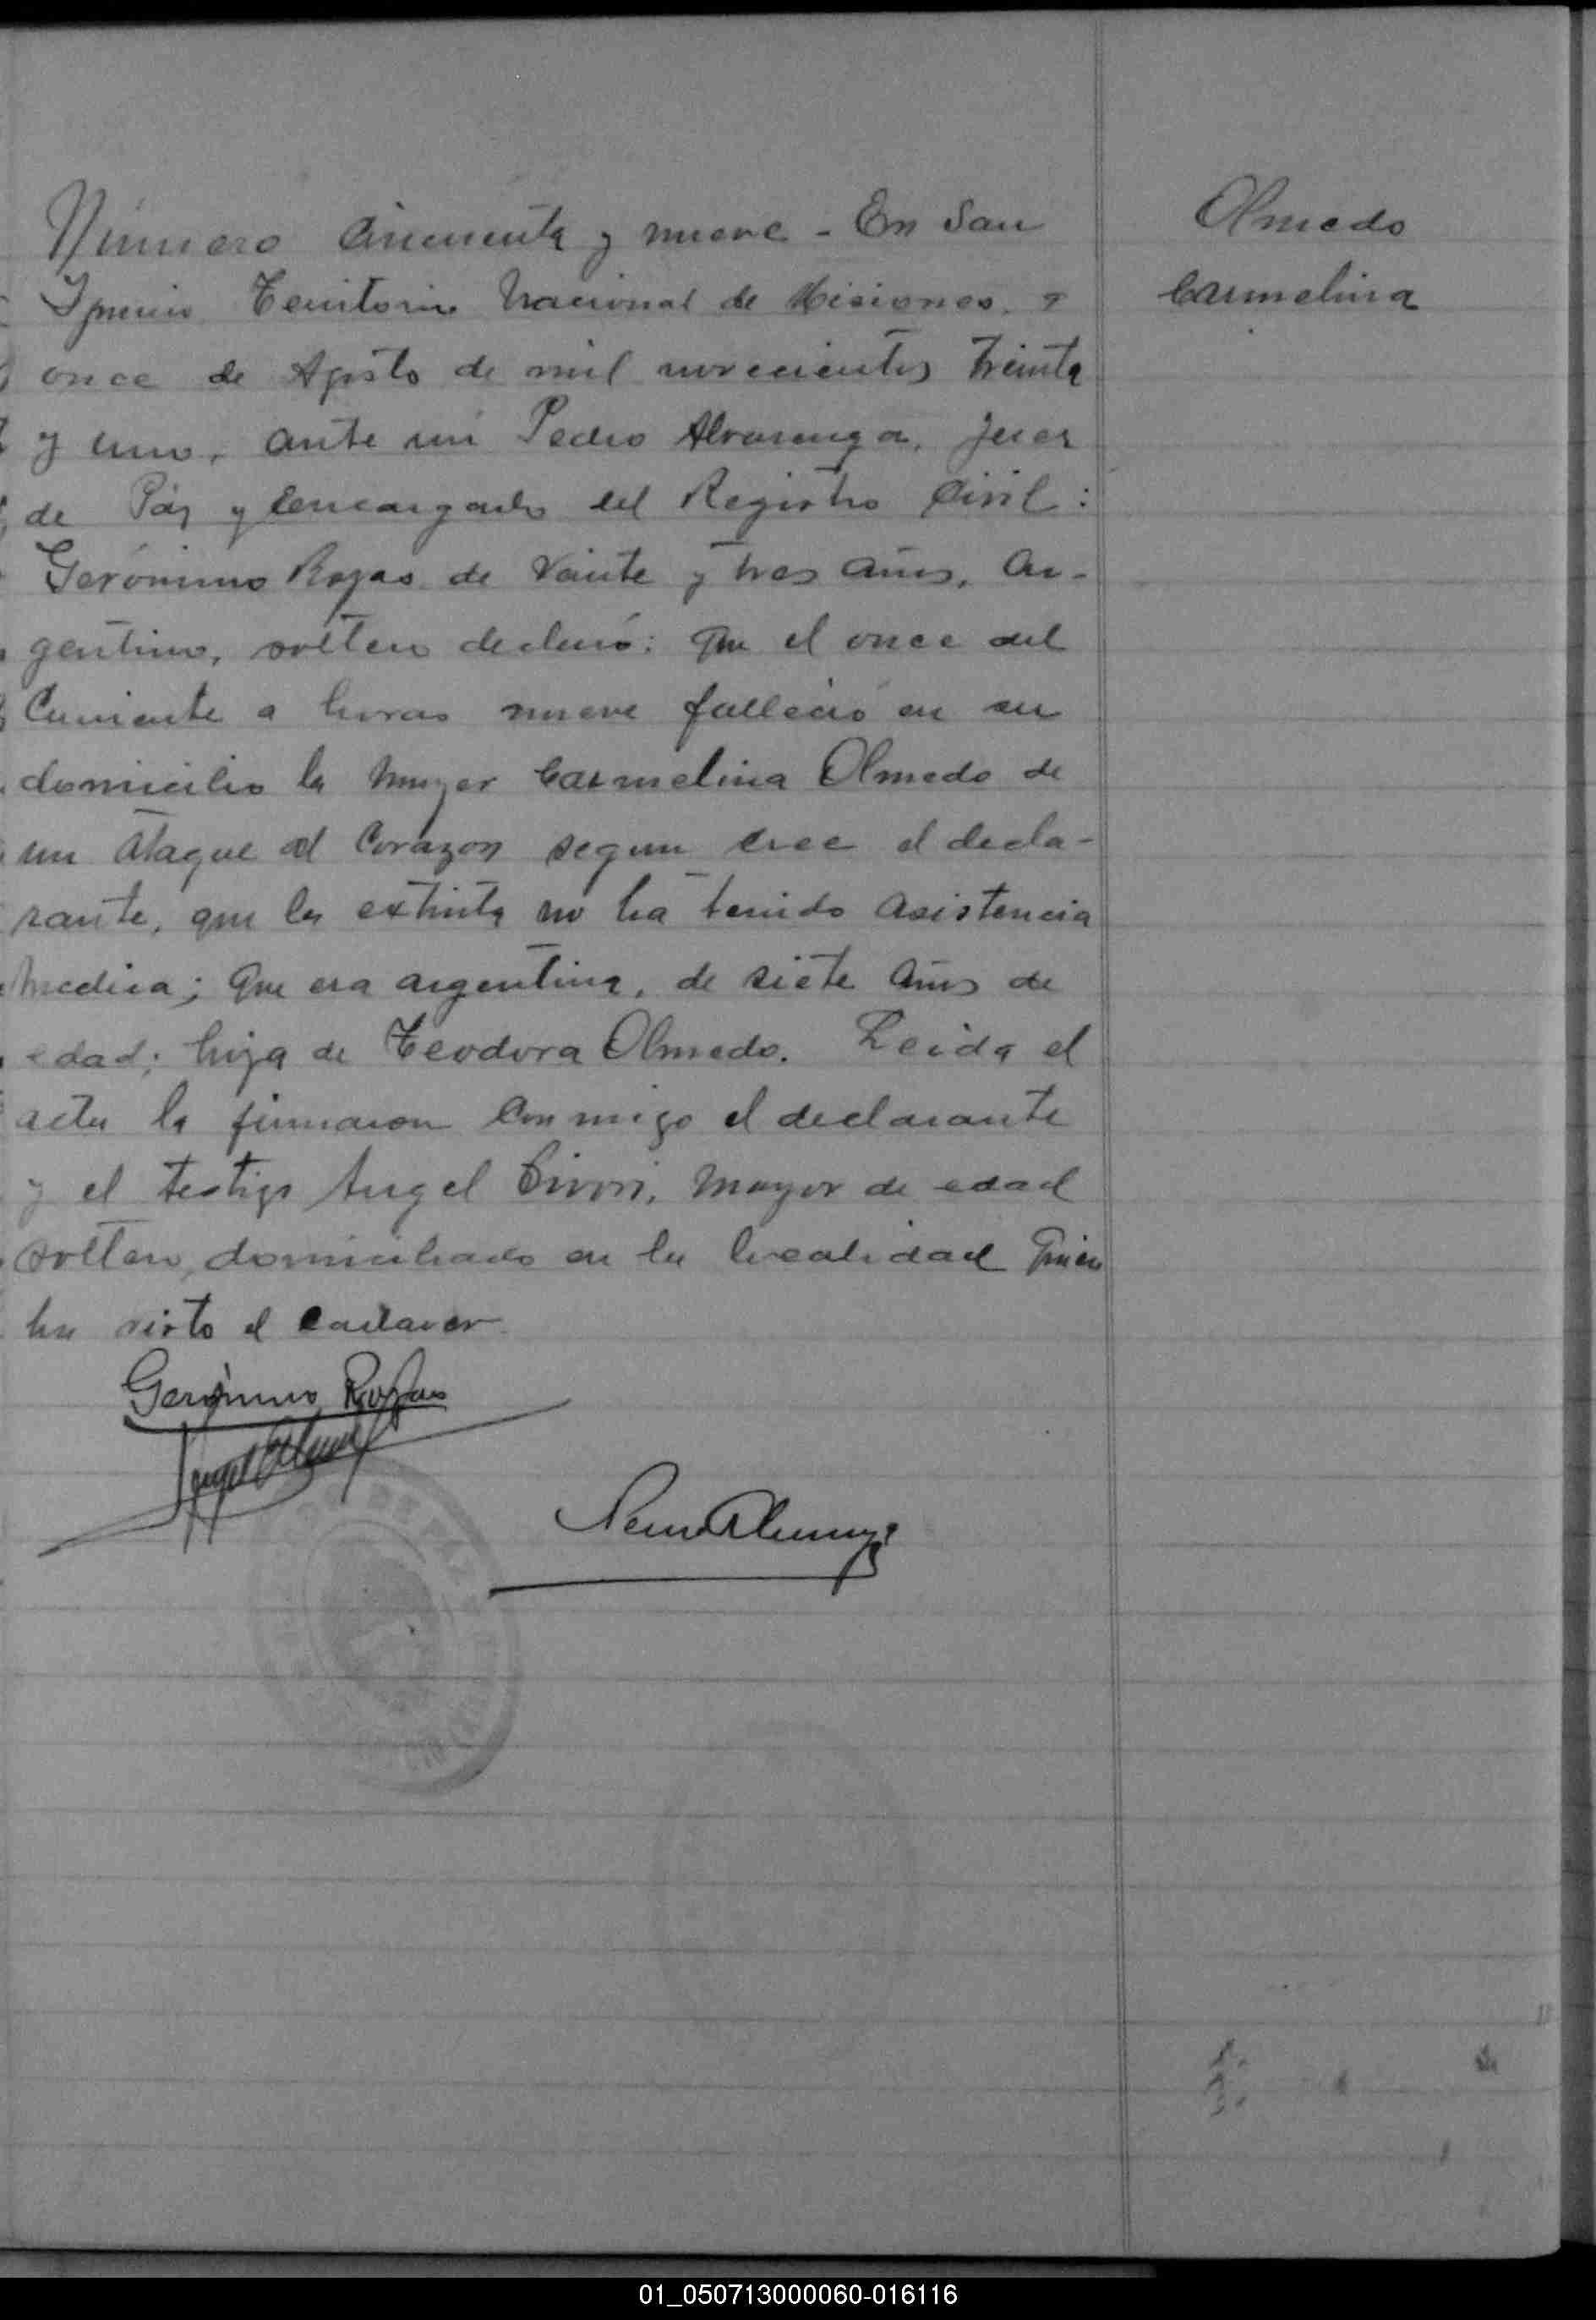 Número cincuenta y nueve - En San
Ignacio Territorio Nacional de Misiones, a
once de Agosto de mil novecientos treinta
y uno, ante mi Pedro Alvarenga, Juez
de Páz y Encargado del Registro Civil:
Gerónimo Rojas de vainte y tres años, Ar-
gentino, soltero declaró: Que el once del
Corriente a horas nueve falleció en su
domicilio la mujer Carmelina Olmedo de
un ataque al Corazon segun cree el decla-
rante, que la extinta no ha tenido asistencia
medica; Que era argentina, de siete años de
edad; hija de Teodora Olmedo. Leida el
acta la firmaron conmigo el declarante
y el testigo Angel, mayor de edad
soltero, domiciliado en la localidad quien
ha visto el cadaver.
Gerónimo Rojas
Angel
Olmedo
Carmelina
01_050713000060-016116